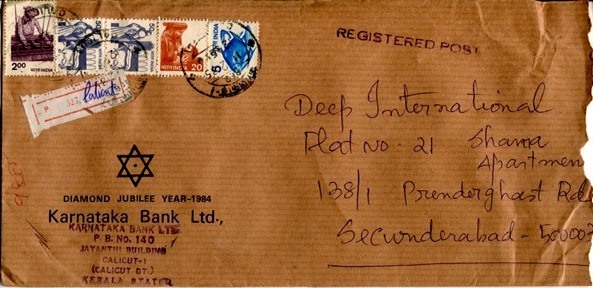 2.00
INDIA
20
REGISTERED POST
Calicut
DIAMOND JUBILEE YEAR-1984
Karnataka Bank Ltd.,
KARNATAKA BANK LTD.
P. B. No. 140
JAYANTHI BUILDING
CALICUT-1
(CALICUT DT.)
KERALA STATE
Deep International
Flat No. 21 Shama
Apartmen
138/1 Prenderghast Rd
Secunderabad - 50000